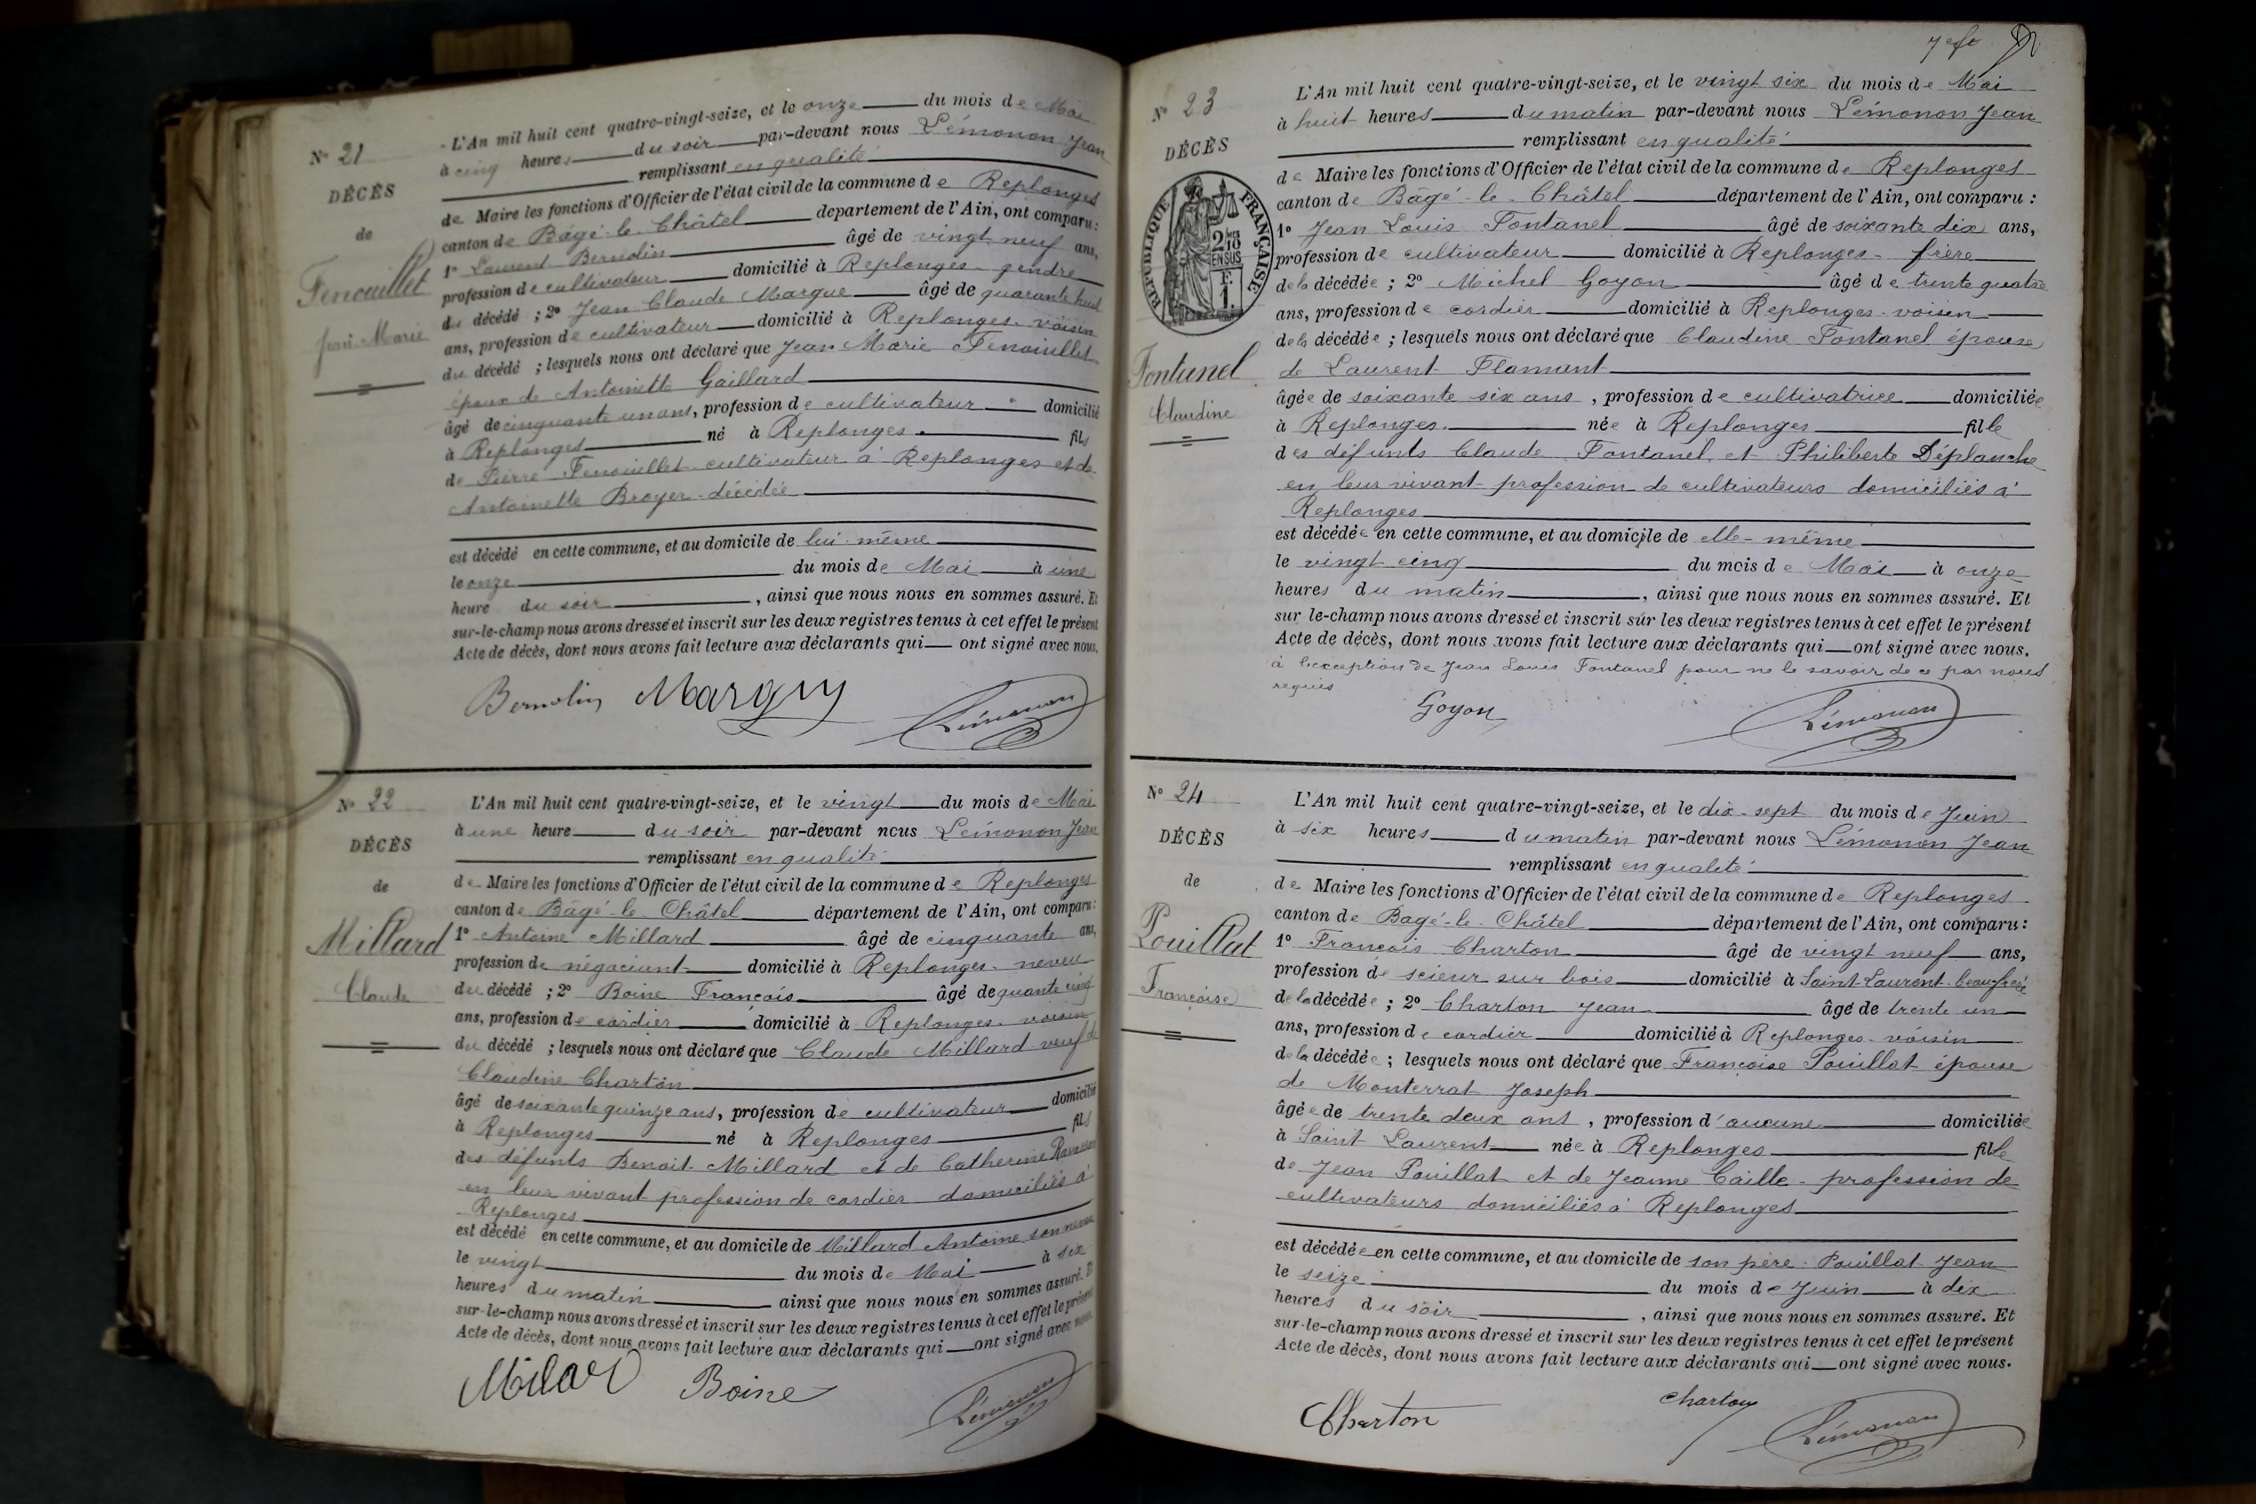 N° 21
DÉCÈS
de
Fenouillet
Jean Marie
L'An mil huit cent quatre-vingt-seize, et le onze du mois de Mai
à cinq heures du soir par-devant nous Lémonon Jean
remplissant en qualité
de Maire les fonctions d'Officier de l'état civil de la commune de Replonges
canton de Bâgé-le-Châtel département de l'Ain, ont comparu :
1° Laurent Bernolin âgé de vingt neuf ans,
profession de cultivateur domicilié à Replonges gendre
du décédé ; 2° Jean Claude Margue âgé de quarante huit
ans, profession de cultivateur domicilié à Replonges voisin
du décédé ; lesquels nous ont déclaré que Jean Marie Fenouillet
époux de Antoinette Gaillard
âgé de cinquante un ans, profession de cultivateur domicilié
à Replonges né à Replonges fils
de Pierre Fenouillet cultivateur à Replonges et de
Antoinette Broyer décédée
est décédé en cette commune, et au domicile de lui-même
le onze du mois de Mai à une
heure du soir , ainsi que nous nous en sommes assuré. Et
sur-le-champ nous avons dressé et inscrit sur les deux registres tenus à cet effet le présent
Acte de décès, dont nous avons fait lecture aux déclarants qui ont signé avec nous.
Bernolin Marguy Lémonon
N° 22
DÉCÈS
de
Millard
Claude
L'An mil huit cent quatre-vingt-seize, et le vingt du mois de Mai
à une heure du soir par-devant nous Lémonon Jean
remplissant en qualité
de Maire les fonctions d'Officier de l'état civil de la commune de Replonges
canton de Bâgé-le-Châtel département de l'Ain, ont comparu :
1° Antoine Millard âgé de cinquante ans,
profession de négociant domicilié à Replonges neveu
du décédé ; 2° Boine François âgé de quarante cinq
ans, profession de cordier domicilié à Replonges voisin
du décédé ; lesquels nous ont déclaré que Claude Millard veuf de
Claudine Charton
âgé de soixante quinze ans, profession de cultivateur domicilié
à Replonges né à Replonges fils
des défunts Benoit Millard et de Catherine
en leur vivant profession de cordier domiciliés à
Replonges
est décédé en cette commune, et au domicile de Millard Antoine son neveu
le vingt du mois de Mai à six
heures du matin ainsi que nous nous en sommes assuré. Et
sur-le-champ nous avons dressé et inscrit sur les deux registres tenus à cet effet le présent
Acte de décès, dont nous avons fait lecture aux déclarants qui ont signé avec nous.
Milar Boine Lémonon
7e fo
N° 23
DÉCÈS
RÉPUBLIQUE FRANÇAISE
2/10 EN SUS
F. 1.
Fontanel
Claudine
L'An mil huit cent quatre-vingt-seize, et le vingt six du mois de Mai
à huit heures du matin par-devant nous Lémonon Jean
remplissant en qualité
de Maire les fonctions d'Officier de l'état civil de la commune de Replonges
canton de Bâgé-le-Châtel département de l'Ain, ont comparu :
1° Jean Louis Fontanel âgé de soixante dix ans,
profession de cultivateur domicilié à Replonges frère
de la décédée ; 2° Michel Goyon âgé de trente quatre
ans, profession de cordier domicilié à Replonges voisin
de la décédée ; lesquels nous ont déclaré que Claudine Fontanel épouse
de Laurent Flamant
âgée de soixante six ans , profession de cultivatrice domiciliée
à Replonges née à Replonges fille
des défunts Claude Fontanel et Philiberte Déplanche
en leur vivant profession de cultivateurs domiciliés à
Replonges
est décédée en cette commune, et au domicile de elle-même
le vingt cinq du mois de Mai à onze
heures du matin , ainsi que nous nous en sommes assuré. Et
sur le-champ nous avons dressé et inscrit sur les deux registres tenus à cet effet le présent
Acte de décès, dont nous avons fait lecture aux déclarants qui ont signé avec nous.
à l'exception de Jean Louis Fontanel pour ne le savoir de ce par nous
requis
Goyon Lémonon
N° 24
DÉCÈS
de
Pouillat
Françoise
L'An mil huit cent quatre-vingt-seize, et le dix-sept du mois de Juin
à six heures du matin par-devant nous Lémonon Jean
remplissant en qualité
de Maire les fonctions d'Officier de l'état civil de la commune de Replonges
canton de Bagé-le-Châtel département de l'Ain, ont comparu :
1° François Charton âgé de vingt neuf ans,
profession de scieur sur bois domicilié à Saint-Laurent beau frère
de la décédée ; 2° Charton Jean âgé de trente un
ans, profession de cordier domicilié à Replonges voisin
de la décédée ; lesquels nous ont déclaré que Françoise Pouillat épouse
de Monterrat Joseph
âgée de trente deux ans , profession d'aucune domiciliée
à Saint Laurent née à Replonges fille
de Jean Pouillat et de Jeanne Caille profession de
cultivateurs domiciliés à Replonges
est décédée en cette commune, et au domicile de son père Pouillat Jean
le seize du mois de Juin à dix
heures du soir , ainsi que nous nous en sommes assuré. Et
sur-le-champ nous avons dressé et inscrit sur les deux registres tenus à cet effet le présent
Acte de décès, dont nous avons fait lecture aux déclarants qui ont signé avec nous.
Charton Charton Lémonon